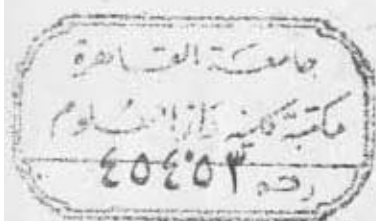 جامعة القاهرة
مكتبة كلية دار العلوم
رقم ٤٥٤٥٣